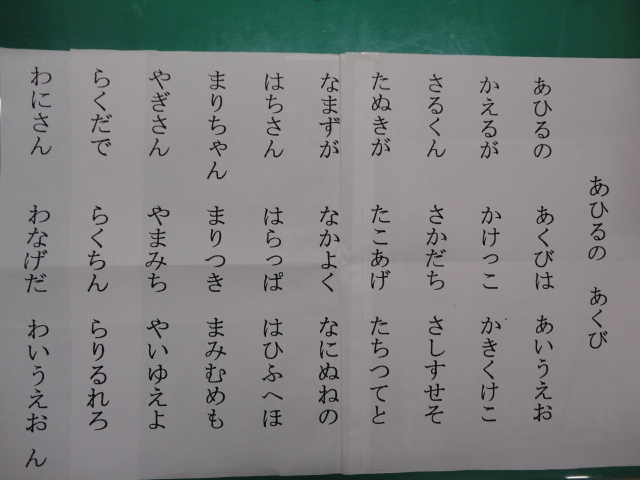 あひるの　あくび
あひるの　あくびは　あいうえお
かえるが　かけっこ　かきくけこ
さるくん　さかだち　さしすせそ
たぬきが　たこあげ　たちつてと
なまずが　なかよく　なにぬねの
はちさん　はらっぱ　はひふへほ
まりちゃん　まりつき　まみむめも
やぎさん　やまみち　やいゆえよ
らくだで　らくちん　らりるれろ
わにさん　わなげだ　わいうえおん